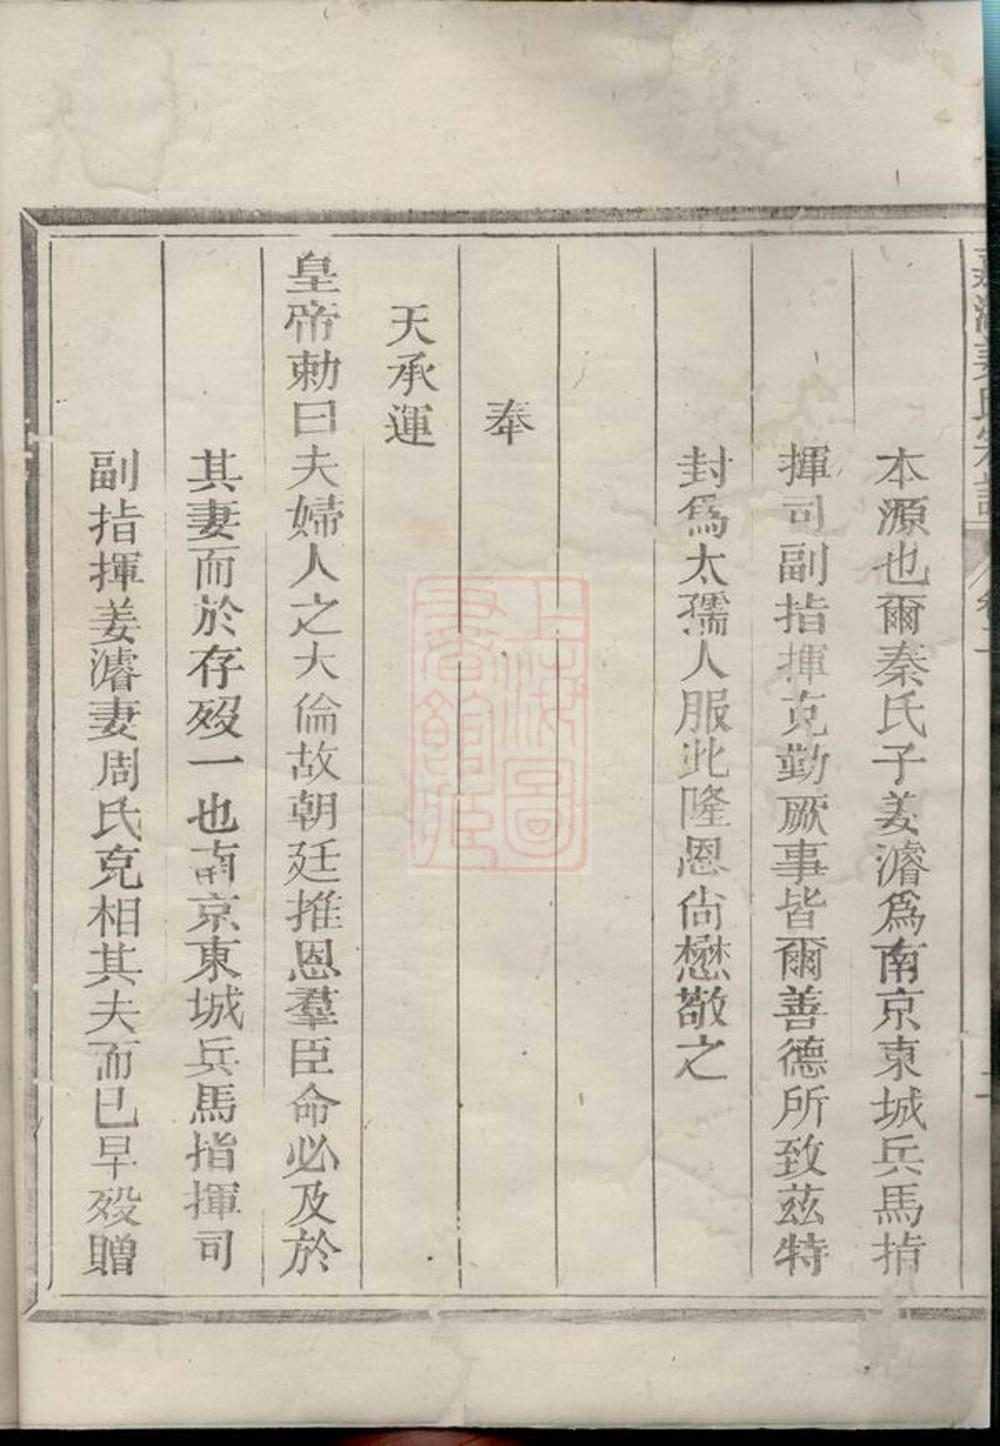 本源也爾秦氏子姜濬爲南京東城兵馬指
揮司副指揮克勤厥事皆爾善德所致茲特
封爲太孺人服此隆恩尙懋敬之
奉
天承運
皇帝勅曰夫婦人之大倫故朝廷推恩羣臣命必及於
其妻而於存歿一也南京東城兵馬指揮司
副指揮姜濬妻周氏克相其夫而已早歿贈
上海圖書館藏